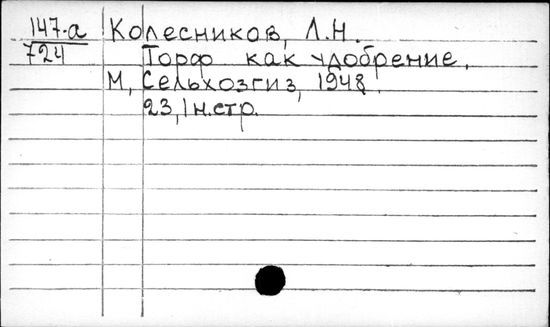 147-а
724
Колесников, Л.Н.
Торф как удобрение.
М, Сельхозгиз, 1948.
23,1н.стр.